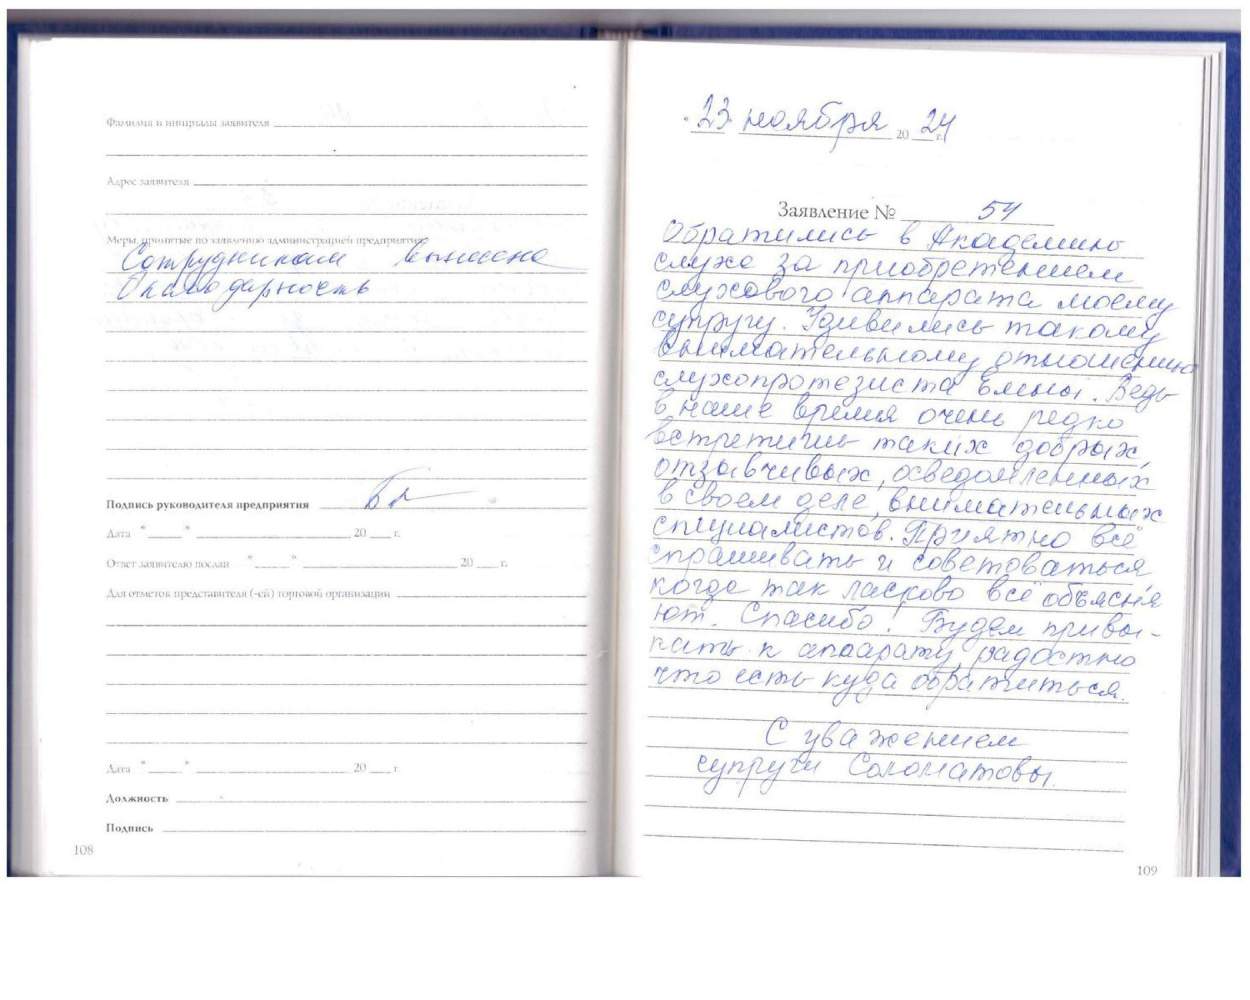 Фамилия и инициалы заявителя
Адрес заявителя
Меры, принятые по заявлению администрацией предприятия:
Сотрудникам вынесена
благодарность
Подпись руководителя предприятия
Дата " " 20 г.
Ответ заявителю послан " " 20 г.
Для отметок представителя (-ей) торговой организации
Дата " " 20 г.
Должность
Подпись
108
" 23 " ноября 20 24 г.
Заявление № 54
Обратились в Академию
слуха за приобретением
слухового аппарата моему
супругу. Удивились такому
внимательному отношению
слухопротезиста Елены. Ведь
в наше время очень редко
встретишь таких добрых,
отзывчивых, осведомленных
в своем деле, внимательных
специалистов. Приятно всё
спрашивать и советоваться
когда так ласково всё объясня
ют. Спасибо! Будем привы-
кать к аппарату, радостно
что есть куда обратиться.
С уважением
супруги Соломатовы.
109